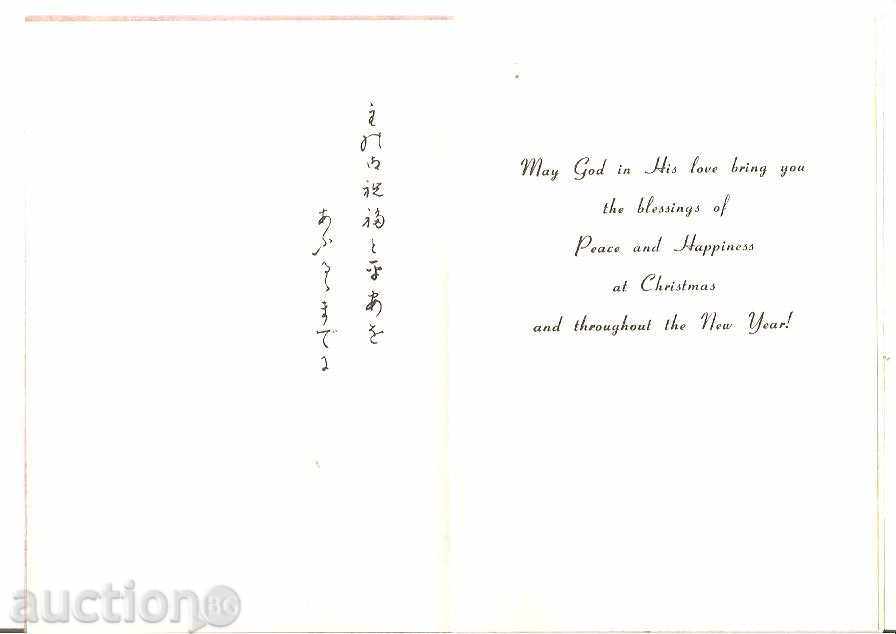 主の御祝福と平安を
あふるるまでに
May God in His love bring you
the blessings of
Peace and Happiness
at Christmas
and throughout the New Year!
auction BG